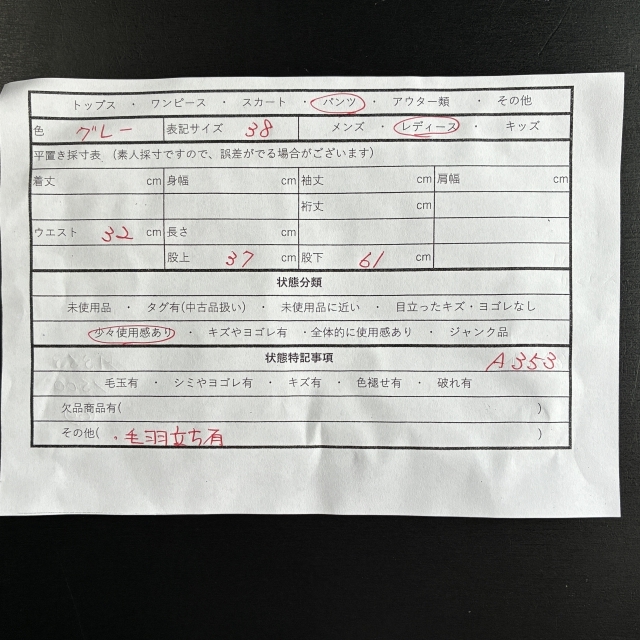 トップス ・ ワンピース ・ スカート ・ パンツ ・ アウター類 ・ その他
色 グレー 表記サイズ 38 メンズ ・ レディース ・ キッズ
平置き採寸表 (素人採寸ですので、誤差がでる場合がございます)
着丈 cm 身幅 cm 袖丈 cm 肩幅 cm
裄丈 cm
ウエスト 32 cm 長さ cm
股上 37 cm 股下 61 cm
状態分類
未使用品 ・ タグ有(中古品扱い) ・ 未使用品に近い ・ 目立ったキズ・ヨゴレなし
少々使用感あり ・ キズやヨゴレ有 ・全体的に使用感あり ・ ジャンク品
状態特記事項 A353
毛玉有 ・ シミやヨゴレ有 ・ キズ有 ・ 色褪せ有 ・ 破れ有
欠品商品有( )
その他( ・毛羽立ち有 )